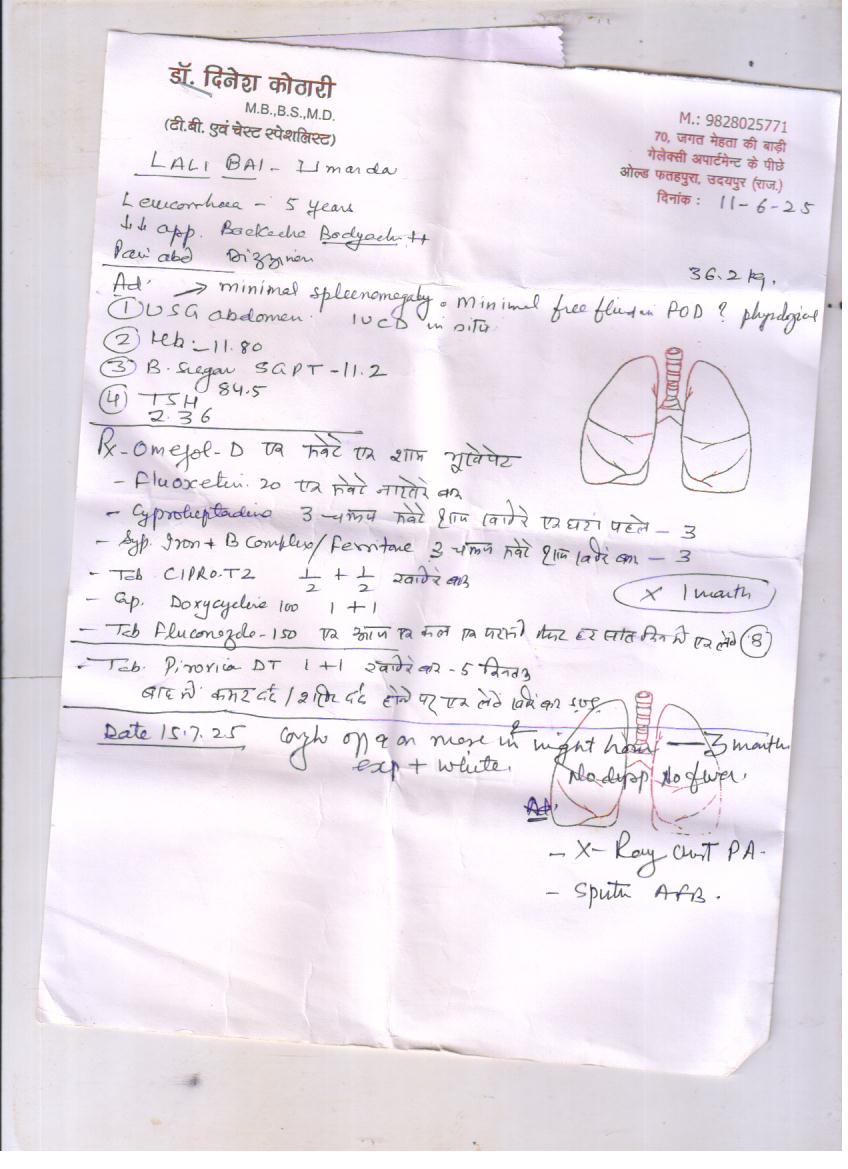 डॉ. दिनेश कोठारी
M.B.,B.S.,M.D.
(टी.बी. एवं चेस्ट स्पेशलिस्ट)
M.: 9828025771
70, जगत मेहता की बाड़ी
गेलेक्सी अपार्टमेन्ट के पीछे
ओल्ड फतहपुरा, उदयपुर (राज.)
दिनांक : 11-6-25
LALI BAI - Umarda
Leucorrhoea - 5 years
↓↓ app. Backache Bodyache ++
Pain abd Dizziness
36.2 kg.
Ad → minimal spleenomegaly. Minimal free fluid in POD ? physological
① USG abdomen: IUCD in situ
② Hb - 11.80
③ B. Sugar SGPT - 11.2
84.5
④ TSH
2.36
Rx - Omefol-D एक सवेरे एक शाम भूखे पेट
- Fluoxetin 20 एक सवेरे नाश्ते के बाद
- Cyproheptadine 3 चम्मच सवेरे शाम खाने के एक घंटा पहले - 3
- Syp. Iron + B Complex/ Ferritone 3 चम्मच सवेरे शाम खाने के बाद - 3
- Tab CIPRO.TZ 1/2 + 1/2 खाने के बाद
x 1 month
- Cap. Doxycycline 100 1 + 1
- Tab Fluconazole - 150 एक आज एक कल एक परसों फिर हर सात दिन में एक लेवें ⑧
- Tab. Pirovia DT 1 + 1 खाने के बाद - 5 दिन तक
बाद में कमर दर्द / शरीर दर्द होने पर एक लेवें
Date 15.7.25 Cough off & on more in night hour — 3 month
exp + white. No dysp No fever.
Ad.
- X-Ray Chest PA.
- Sputu AFB.